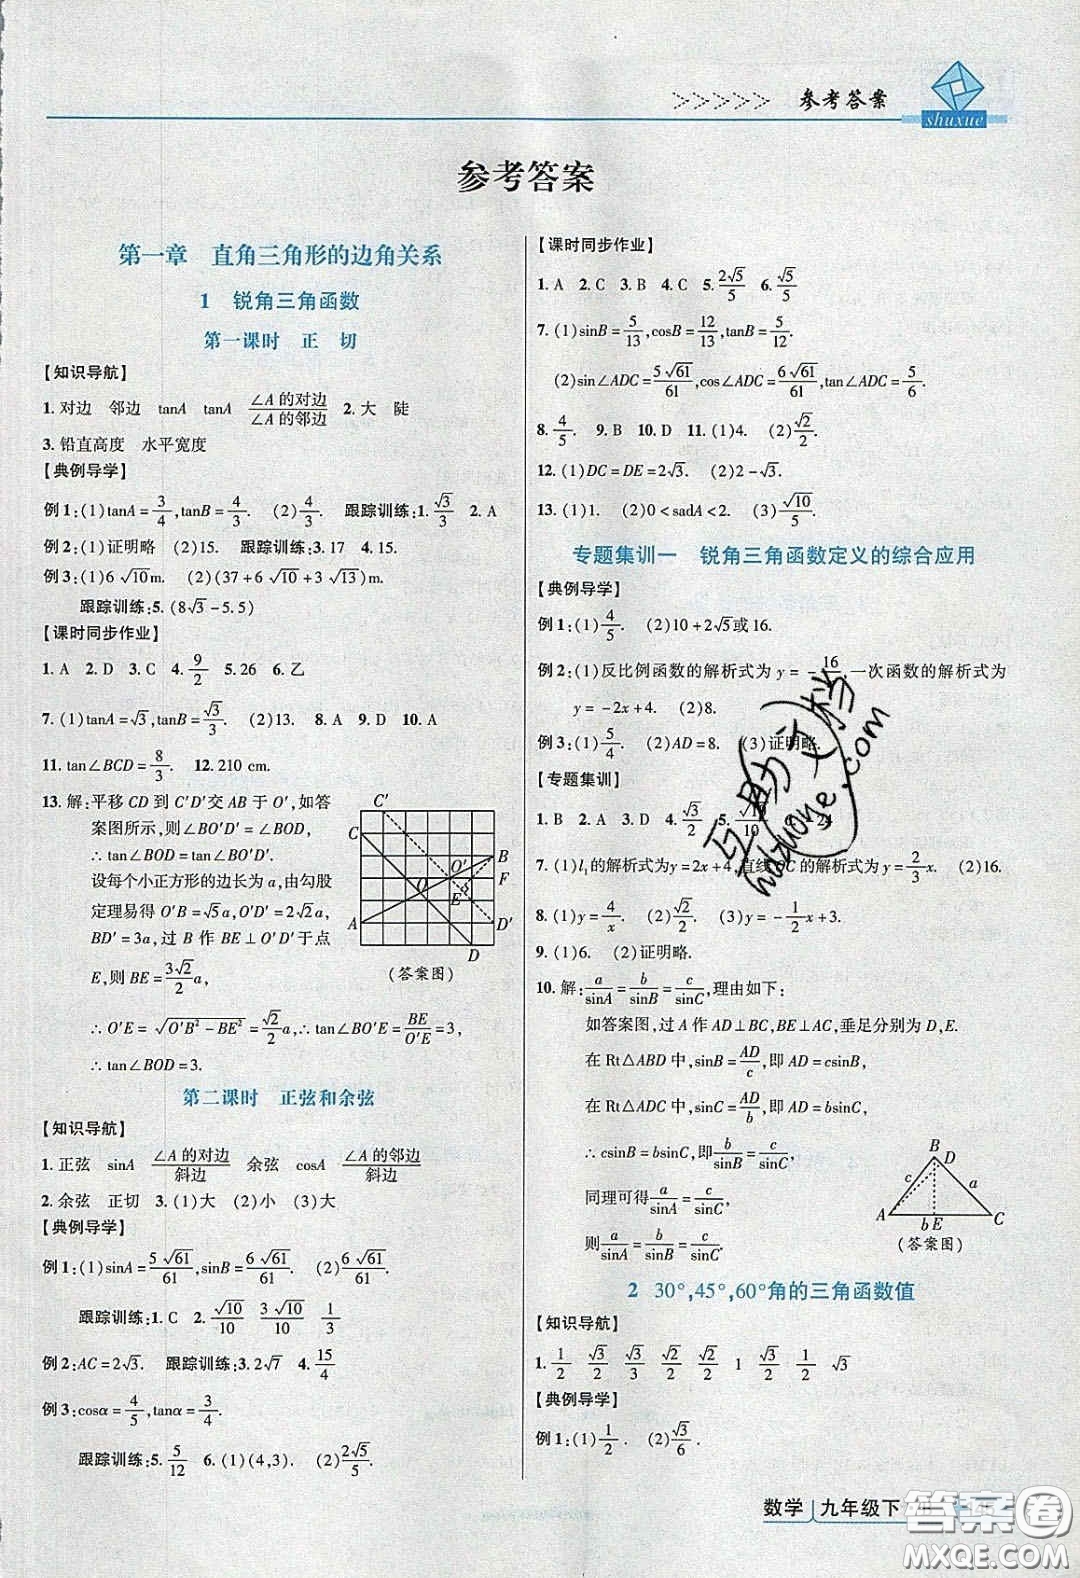 >>>>> 参考答案
shuxue
参考答案
第一章 直角三角形的边角关系
1 锐角三角函数
第一课时 正 切
【知识导航】
1. 对边 邻边 tanA tanA ∠A的对边/∠A的邻边 2. 大 陡
3. 铅直高度 水平宽度
【典例导学】
例1:(1)tanA=3/4,tanB=4/3. (2)4/3. 跟踪训练:1. √3/3 2. A
例2:(1)证明略 (2)15. 跟踪训练:3. 17 4. 15.
例3:(1)6√10m. (2)(37+6√10+3√13)m.
跟踪训练:5. (8√3-5.5)
【课时同步作业】
1. A 2. D 3. C 4. 9/2 5. 26 6. 乙
7. (1)tanA=√3,tanB=√3/3. (2)13. 8. A 9. D 10. A
11. tan∠BCD=8/3. 12. 210 cm.
13. 解:平移CD到C′D′交AB于O′,如答
案图所示,则∠BO′D′=∠BOD,
∴tan∠BOD=tan∠BO′D′.
设每个小正方形的边长为a,由勾股
定理易得O′B=√5a,O′D′=2√2a,
BD′=3a,过B作BE⊥O′D′于点
E,则BE=3√2/2a,
C′
C
O′
B
O
F
E
A
D′
D
(答案图)
∴O′E=√(O′B²-BE²)=√2/2a,∴tan∠BO′E=BE/O′E=3,
∴tan∠BOD=3.
第二课时 正弦和余弦
【知识导航】
1. 正弦 sinA ∠A的对边/斜边 余弦 cosA ∠A的邻边/斜边
2. 余弦 正切 3. (1)大 (2)小 (3)大
【典例导学】
例1:(1)sinA=5√61/61,sinB=6√61/61. (2)6√61/61.
跟踪训练:1. C 2. √10/10 3√10/10 1/3
例2:AC=2√3. 跟踪训练:3. 2√7 4. 15/4
例3:cosα=4/5,tanα=3/4.
跟踪训练:5. 5/12 6. (1)(4,3). (2)2√5/5.
【课时同步作业】
1. A 2. C 3. B 4. C 5. 2√5/5 6. √5/5
7. (1)sinB=5/13,cosB=12/13,tanB=5/12.
(2)sin∠ADC=5√61/61,cos∠ADC=6√61/61,tan∠ADC=5/6.
8. 4/5. 9. B 10. D 11. (1)4. (2)√2/2.
12. (1)DC=DE=2√3. (2)2-√3.
13. (1)1. (2)0<sadA<2. (3)√10/5.
专题集训一 锐角三角函数定义的综合应用
【典例导学】
例1:(1)4/5. (2)10+2√5或16.
例2:(1)反比例函数的解析式为y=-16 一次函数的解析式为
y=-2x+4. (2)8.
例3:(1)5/4. (2)AD=8. (3)证明略.
【专题集训】
1. B 2. A 3. D 4. √3/2 5. √10/10 24
7. (1)l₁的解析式为y=2x+4,直线 C的解析式为y=2/3x. (2)16.
8. (1)y=4/x. (2)√2/2. (3)y=-1/2x+3.
9. (1)6. (2)证明略.
10. 解:a/sinA=b/sinB=c/sinC,理由如下:
如答案图,过A作AD⊥BC,BE⊥AC,垂足分别为D,E.
在Rt△ABD中,sinB=AD/c,即AD=csinB,
在Rt△ADC中,sinB=AD/b,即AD=bsinC,
∴csinB=bsinC,即b/sinB=c/sinC,
同理可得a/sinA=c/sinC,
则a/sinA=b/sinB=c/sinC.
B
D
c
a
A
b E
C
(答案图)
2 30°,45°,60°角的三角函数值
【知识导航】
1. 1/2 √3/2 √3/3 √2/2 √2/2 1 √3/2 1/2 √3
【典例导学】
例1:(1)1/2. (2)√3/6.
互助文档
huzuoye.com
数学 九年级下
答案圈
MXQE.COM